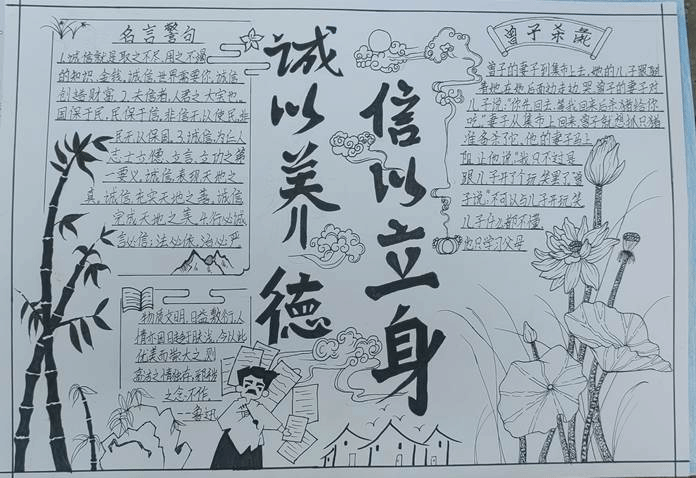 名言警句
1.诚信就是取之不尽,用之不竭
的知识、金钱。诚信,世界需要你,诚信
创造财富。2.夫信者,人君之大宝也。
国保于民,民保于信,非信无以使民,非
民无以保国。3.诚信,为仁人
志士立德、立言、立功之第
一要义。诚信,表现天地之
真,诚信,充实天地之善,诚信,
完成天地之美。4.行必诚
言必信;法必依,治必严
诚以养德
信以立身
曾子杀彘
曾子的妻子到集市上去,他的儿子跟随
着他,在他后面边走边哭。曾子的妻子对
儿子说:“你先回去,等我回来后杀猪给你
吃。”妻子从集市上回来,曾子就想抓只猪
准备杀了它,他的妻子马上
阻止他说:“我只不过是
跟儿子开了个玩笑罢了。”曾
子说:“不可以与儿子开玩笑
儿子什么都不懂
他只学习父母
物质文明,日益数衍,人
情亦因日趋于肤浅,今以此
优美而崇大之,则
高洁之情独存,邪秽
之念不作
——鲁迅